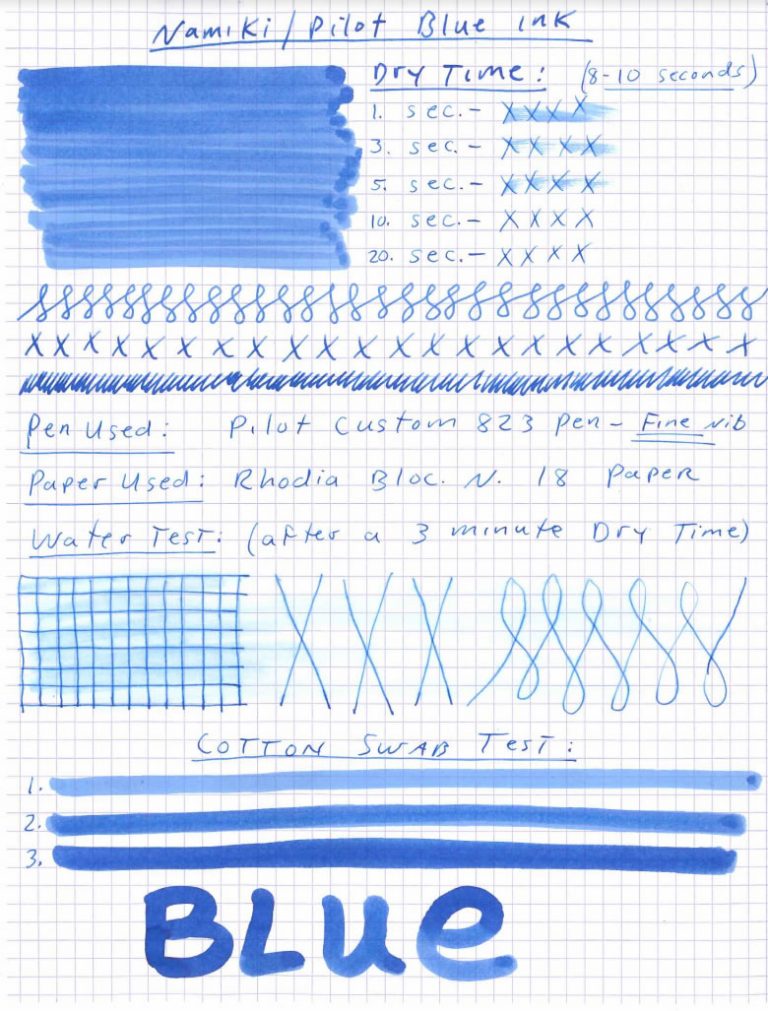 Namiki/Pilot Blue Ink
Dry Time: (8-10 seconds)
1. sec.- X X X X
3. sec.- X X X X
5. sec.- X X X X
10. sec.- X X X X
20. sec.- X X X X
X X X X X X X X X X X X X X X X X X X X X X X X
Pen Used: Pilot Custom 823 Pen- Fine Nib
Paper Used: Rhodia Bloc. N. 18 Paper
Water Test: (after a 3 minute Dry Time)
X X X
Cotton Swab Test:
1.
2.
3.
BLue